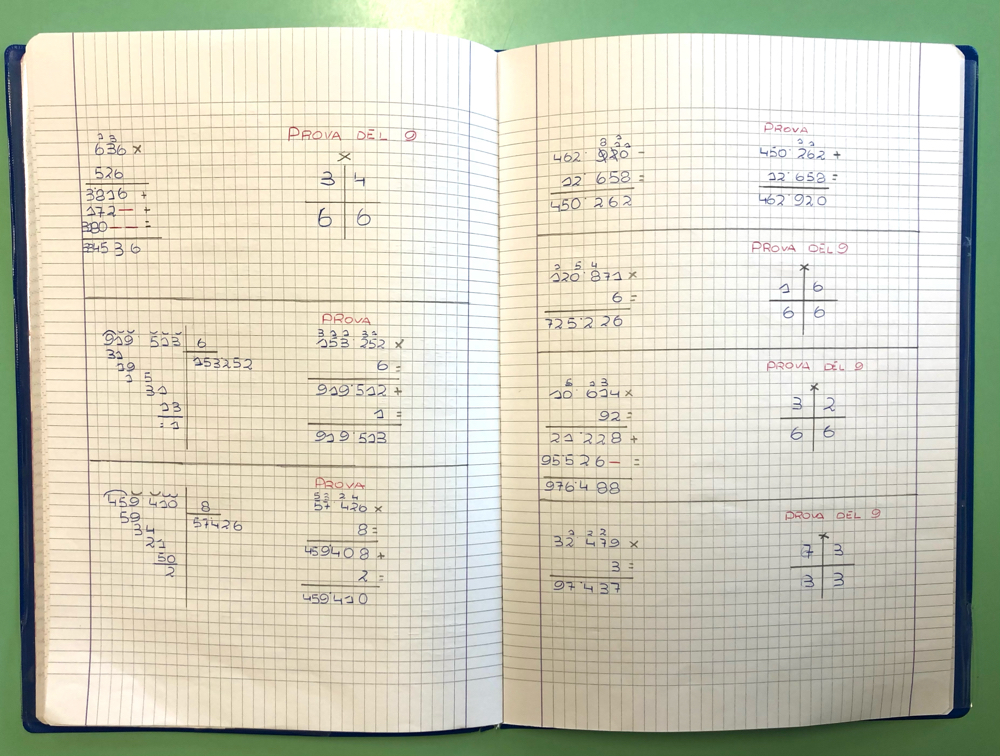 2 3
636 x
526
3816 +
172— +
380—— =
334536
PROVA DEL 9
x
3 4
6 6
919 513 6
31 153252
19
1 5
31
13
:1
PROVA
153 252 x
6 =
919·512 +
1 =
919·513
459 410 8
59 57426
34
21
50
2
PROVA
53 2 4
57 426 x
8 =
459408 +
2 =
459·410
462·920 -
12·658 =
450·262
PROVA
450·262 +
12·658 =
462·920
1 5 4
120·871 x
6 =
725·226
PROVA DEL 9
x
1 6
6 6
10·614 x
92 =
21·228 +
95·526— =
976·488
PROVA DEL 9
x
3 2
6 6
32 479 x
3 =
97·437
PROVA DEL 9
x
7 3
3 3